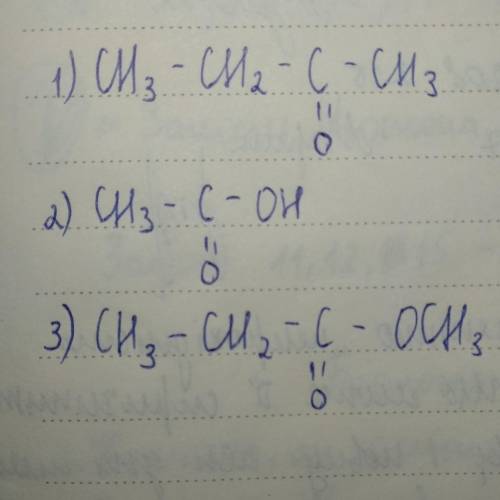 1) CH3 - CH2 - C - CH3
=
O
2) CH3 - C - OH
=
O
3) CH3 - CH2 - C - OCH3
=
O